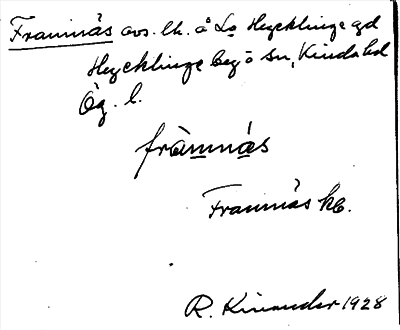 Framnäs avs. lh. å Lo Heycklinge gd
Heycklinge by o sn, Kinda hd
Ög. l.
främnäs
Framnäs hC.
R. Kinander 1928